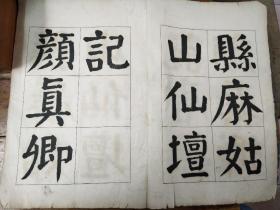 縣麻姑
山仙壇
記
顏真卿